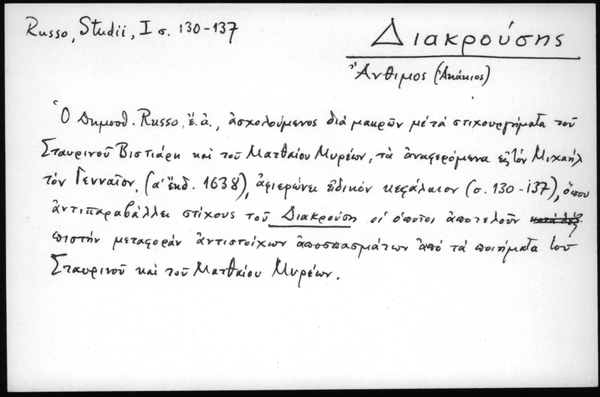 Russo, Studii, I σ. 130-137
Διακρούσης
Ἄνθιμος (Ἀκάκιος)
Ὁ Δημοσθ. Russo, ἔ.ἀ., ἀσχολούμενος διὰ μακρῶν μὲ τὰ στιχουργήματα τοῦ
Σταυρινοῦ Βιστιάρη καὶ τοῦ Ματθαίου Μυρέων, τὰ ἀναφερόμενα εἰς τὸν Μιχαὴλ
τὸν Γενναῖον, (α' ἔκδ. 1638), ἀφιερώνει εἰδικὸν κεφάλαιον (σ. 130-137), ὅπου
ἀντιπαραβάλλει στίχους τοῦ Διακρούση οἱ ὁποῖοι ἀποτελοῦν
πιστὴν μεταφορὰν ἀντιστοίχων ἀποσπασμάτων ἀπὸ τὰ ποιήματα τοῦ
Σταυρινοῦ καὶ τοῦ Ματθαίου Μυρέων.